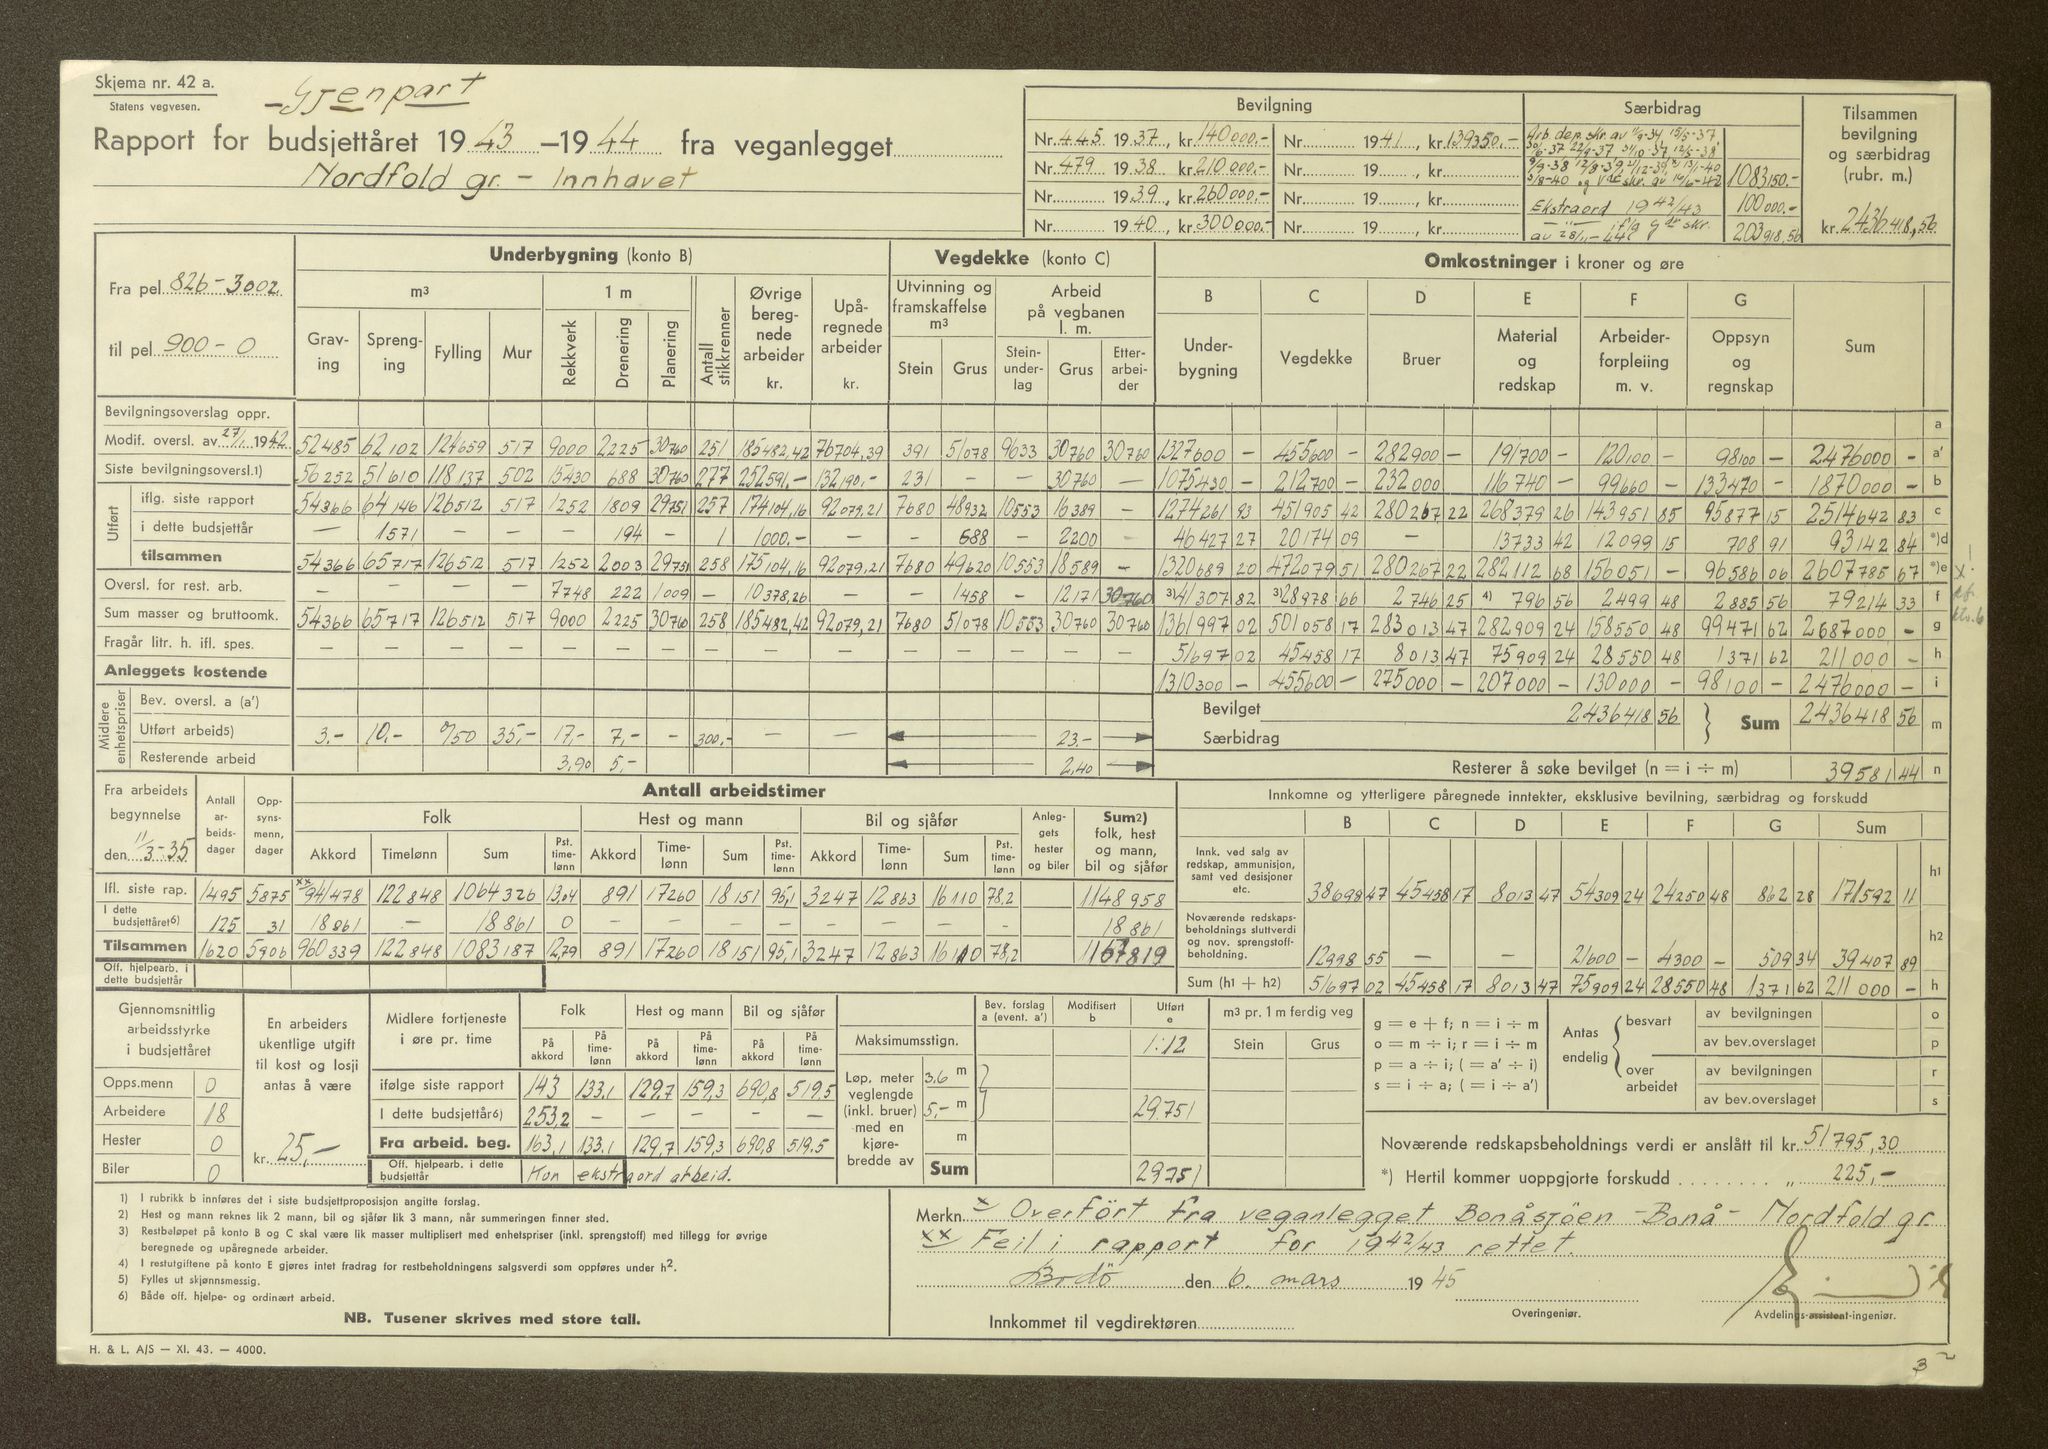 Skjema nr. 42 a.
Statens vegvesen.
-Gjenpart
Rapport for budsjettåret 1943 –1944 fra veganlegget
Nordfold gr. - Innhavet
Bevilgning
Nr. 445 1937, kr. 140000.- Nr. 1941, kr. 139350.-
Nr. 479 1938 kr. 210000.- Nr. 19 , kr.
Nr. 1939, kr. 260000.- Nr. 19 , kr.
Nr. 1940, kr. 300000.- Nr. 19 , kr.
Særbidrag
Arb. dep. skr. av 11/9-34, 15/5-37
1083150.-
Ekstraord 1942/43 100000.-
av 28/1-44 203918,56
Tilsammen
bevilgning
og særbidrag
(rubr. m.)
kr. 2436418,56
Fra pel 826-3002
til pel 900-0
Underbygning (konto B) Vegdekke (konto C) Omkostninger i kroner og øre
m³ 1 m
Graving Sprenging Fylling Mur Rekkverk Drenering Planering Antall stikkrenner Øvrige beregnede arbeider kr. Upåregnede arbeider kr.
Utvinning og framskaffelse m³ Stein Grus
Arbeid på vegbanen l. m. Steinunderlag Grus Etterarbeider
B Underbygning C Vegdekke D Bruer E Material og redskap F Arbeiderforpleiing m. v. G Oppsyn og regnskap Sum
Bevilgningsoverslag oppr. a
Modif. oversl. av 27/1 1942 52485 62102 124659 517 9000 2225 30760 251 185482,42 76704,39 391 51078 9633 30760 30760 1327600 – 455600 – 282900 – 191700 – 120100 – 98100 – 2476000 – a'
Siste bevilgningsoversl.1) 56252 51610 118137 502 15430 688 30760 277 252591,- 132190.- 231 – – 30760 — 1075430 – 212700 – 232000 116740 – 99660 – 133470 – 1870000 – b
Utført
iflg. siste rapport 54366 64146 126512 517 1252 1809 29751 257 174104,16 92079,21 7680 48932 10553 16389 – 1274261 93 451905 42 280267 22 268379 26 143951 85 95877 15 2514642 83 c
i dette budsjettår – 1571 – – – 194 – 1 1000.- – – 688 – 2200 – 46427 27 20174 09 – 13733 42 12099 15 708 91 93142 84 *)d
tilsammen 54366 65717 126512 517 1252 2003 29751 258 175104,16 92079,21 7680 49620 10553 18589 – 1320689 20 472079 51 280267 22 282112 68 156051 – 96586 06 2607785 67 *)e
Oversl. for rest. arb. – – – – 7748 222 1009 – 10378,26 – – 1458 – 12171 30760 3) 41307 82 3) 28978 66 2746 25 4) 796 56 2499 48 2885 56 79214 33 f
Sum masser og bruttoomk. 54366 65717 126512 517 9000 2225 30760 258 185482,42 92079,21 7680 51078 10553 30760 30760 1361997 02 501058 17 283013 47 282909 24 158550 48 99471 62 2687000 – g
Fragår litr. h. ifl. spes. – – – – – – – – – – – – – – – 51697 02 45458 17 8013 47 75909 24 28550 48 1371 62 211000 – h
Anleggets kostende 1310300 – 455600 – 275000 – 207000 – 130000 – 98100 – 2476000 – i
Midlere enhetspriser
Bev. oversl. a (a')
Utført arbeid5) 3.- 10.- 0/50 35,- 17,- 7,- – 300.- – – 23.-
Resterende arbeid 3,90 5,- 2,40
Bevilget 2436418 56
Særbidrag
Sum 2436418 56 m
Resterer å søke bevilget (n = i ÷ m) 39581 44 n
Fra arbeidets begynnelse den 11/3-35
Antall arbeidsdager Oppsynsmenn, dager
Antall arbeidstimer
Folk Hest og mann Bil og sjåfør Anleggets hester og biler Sum2) folk, hest og mann, bil og sjåfør
Akkord Timelønn Sum Pst. timelønn Akkord Timelønn Sum Pst. timelønn Akkord Timelønn Sum Pst. timelønn
Ifl. siste rap. 1495 5875 xx 941478 122848 1064326 13,04 891 17260 18151 95,1 3247 12863 16110 78,2 1148958
I dette budsjettåret6) 125 31 18861 – 18861 0 – – – – – – – – 18861
Tilsammen 1620 5906 960339 122848 1083187 12,79 891 17260 18151 95,1 3247 12863 16110 78,2 1167819
Off. hjelpearb. i dette budsjettår
Innkomne og ytterligere påregnede inntekter, eksklusive bevilning, særbidrag og forskudd
B C D E F G Sum
Innk. ved salg av redskap, ammunisjon, samt ved desisjoner etc. 38698 47 45458 17 8013 47 54309 24 24250 48 862 28 171592 11 h1
Noværende redskapsbeholdnings sluttverdi og nov. sprengstoffbeholdning. 12998 55 – – 21600 – 4300 – 509 34 39407 89 h2
Sum (h1 + h2) 51697 02 45458 17 8013 47 75909 24 28550 48 1371 62 211000 – h
Gjennomsnittlig arbeidsstyrke i budsjettåret
Opps.menn 0
Arbeidere 18
Hester 0
Biler 0
En arbeiders ukentlige utgift til kost og losji antas å være
kr. 25,-
Midlere fortjeneste i øre pr. time
Folk Hest og mann Bil og sjåfør
På akkord På timelønn På akkord På timelønn På akkord På timelønn
ifølge siste rapport 143 133,1 129,7 159,3 690,8 519,5
I dette budsjettår6) 253,2 – – – – –
Fra arbeid. beg. 163,1 133.1 129,7 159,3 690,8 519.5
Off. hjelpearb. i dette budsjettår Kun ekstraord arbeid.
Bev. forslag a (event. a') Modifisert b Utført e
Maksimumsstign. 1:12
Løp. meter veglengde (inkl. bruer) med en kjørebredde av
3,6 m
5,- m 29751
m
Sum 29751
m³ pr. 1 m ferdig veg
Stein Grus
g = e + f; n = i ÷ m
o = m ÷ i; r = i ÷ m
p = a ÷ i; ( = a' ÷ i)
s = i ÷ a; ( = i ÷ a')
Antas endelig
besvart av bevilgningen o
av bev.overslaget p
over arbeidet av bevilgningen r
av bev.overslaget s
Noværende redskapsbeholdnings verdi er anslått til kr. 51795,30
*) Hertil kommer uoppgjorte forskudd . . . . . . . . „ 225,-
1) I rubrikk b innføres det i siste budsjettproposisjon angitte forslag.
2) Hest og mann reknes lik 2 mann, bil og sjåfør lik 3 mann, når summeringen finner sted.
3) Restbeløpet på konto B og C skal være lik masser multiplisert med enhetspriser (inkl. sprengstoff) med tillegg for øvrige
beregnede og upåregnede arbeider.
4) I restutgiftene på konto E gjøres intet fradrag for restbeholdningens salgsverdi som oppføres under h2.
5) Fylles ut skjønnsmessig.
6) Både off. hjelpe- og ordinært arbeid.
NB. Tusener skrives med store tall.
Merkn. x Overført fra veganlegget Bonåsjøen - Bonå - Nordfold gr.
xx Feil i rapport for 1942/43 rettet.
Bodö den 6. mars 1945
Overingeniør. Avdelings-assistent-ingeniør.
Innkommet til vegdirektøren
H. & L. A/S — XI. 43. — 4000.